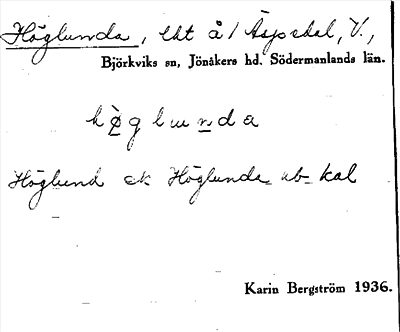 Höglunda, lht å/ Äspedal, V.,
Björkviks sn, Jönåkers hd. Södermanlands län.
hø̀glunda
Höglund ek Höglunda ub kal
Karin Bergström 1936.